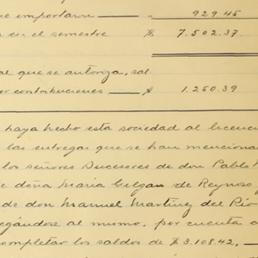 ue importaron — 929.45
en el semestre $ 7.502.37.
al que se autoriza, sal
er contribuciones — $ 1.250.39
haya hecho esta sociedad al licencia
las entregas que se han mencionad
los señores Sucesores de don Pablo
e doña María Gulgan de Reynoso,
de don Manuel Martínez del Río
egándose al mismo, por cuenta d
completar los saldos de $ 3.108.42,